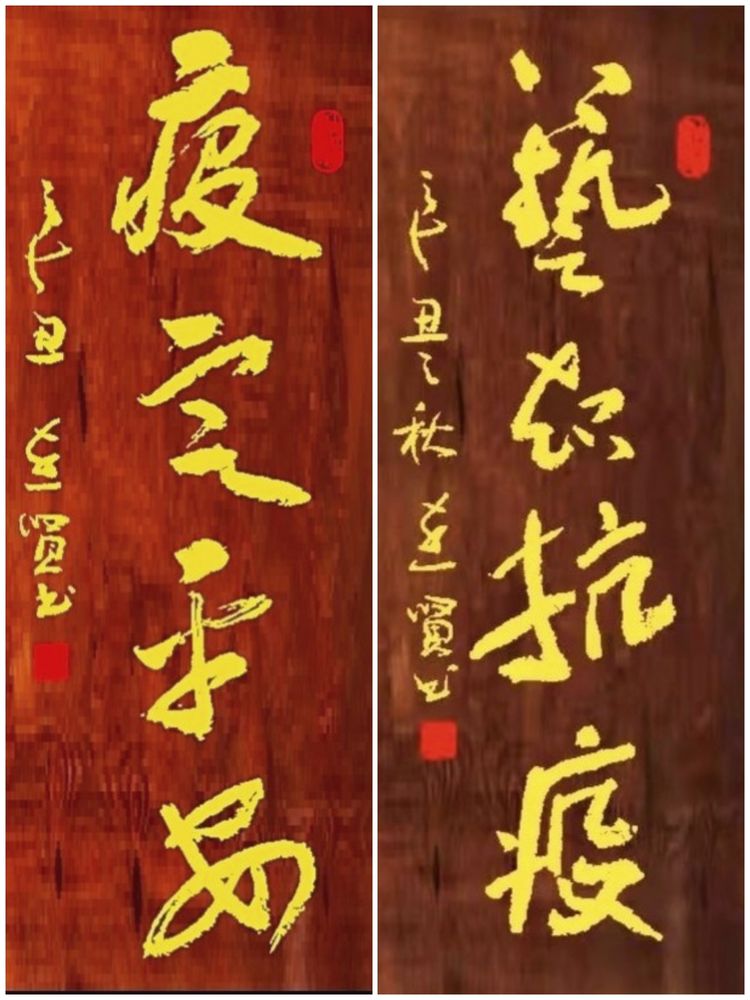 疫定平安
辛丑達賢书
藝起抗疫
辛丑之秋達賢书